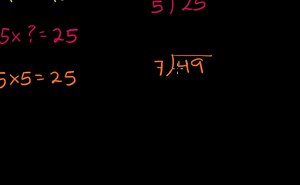 5 ) 25
5 x ? = 25
5 x 5 = 25
7 ) 49